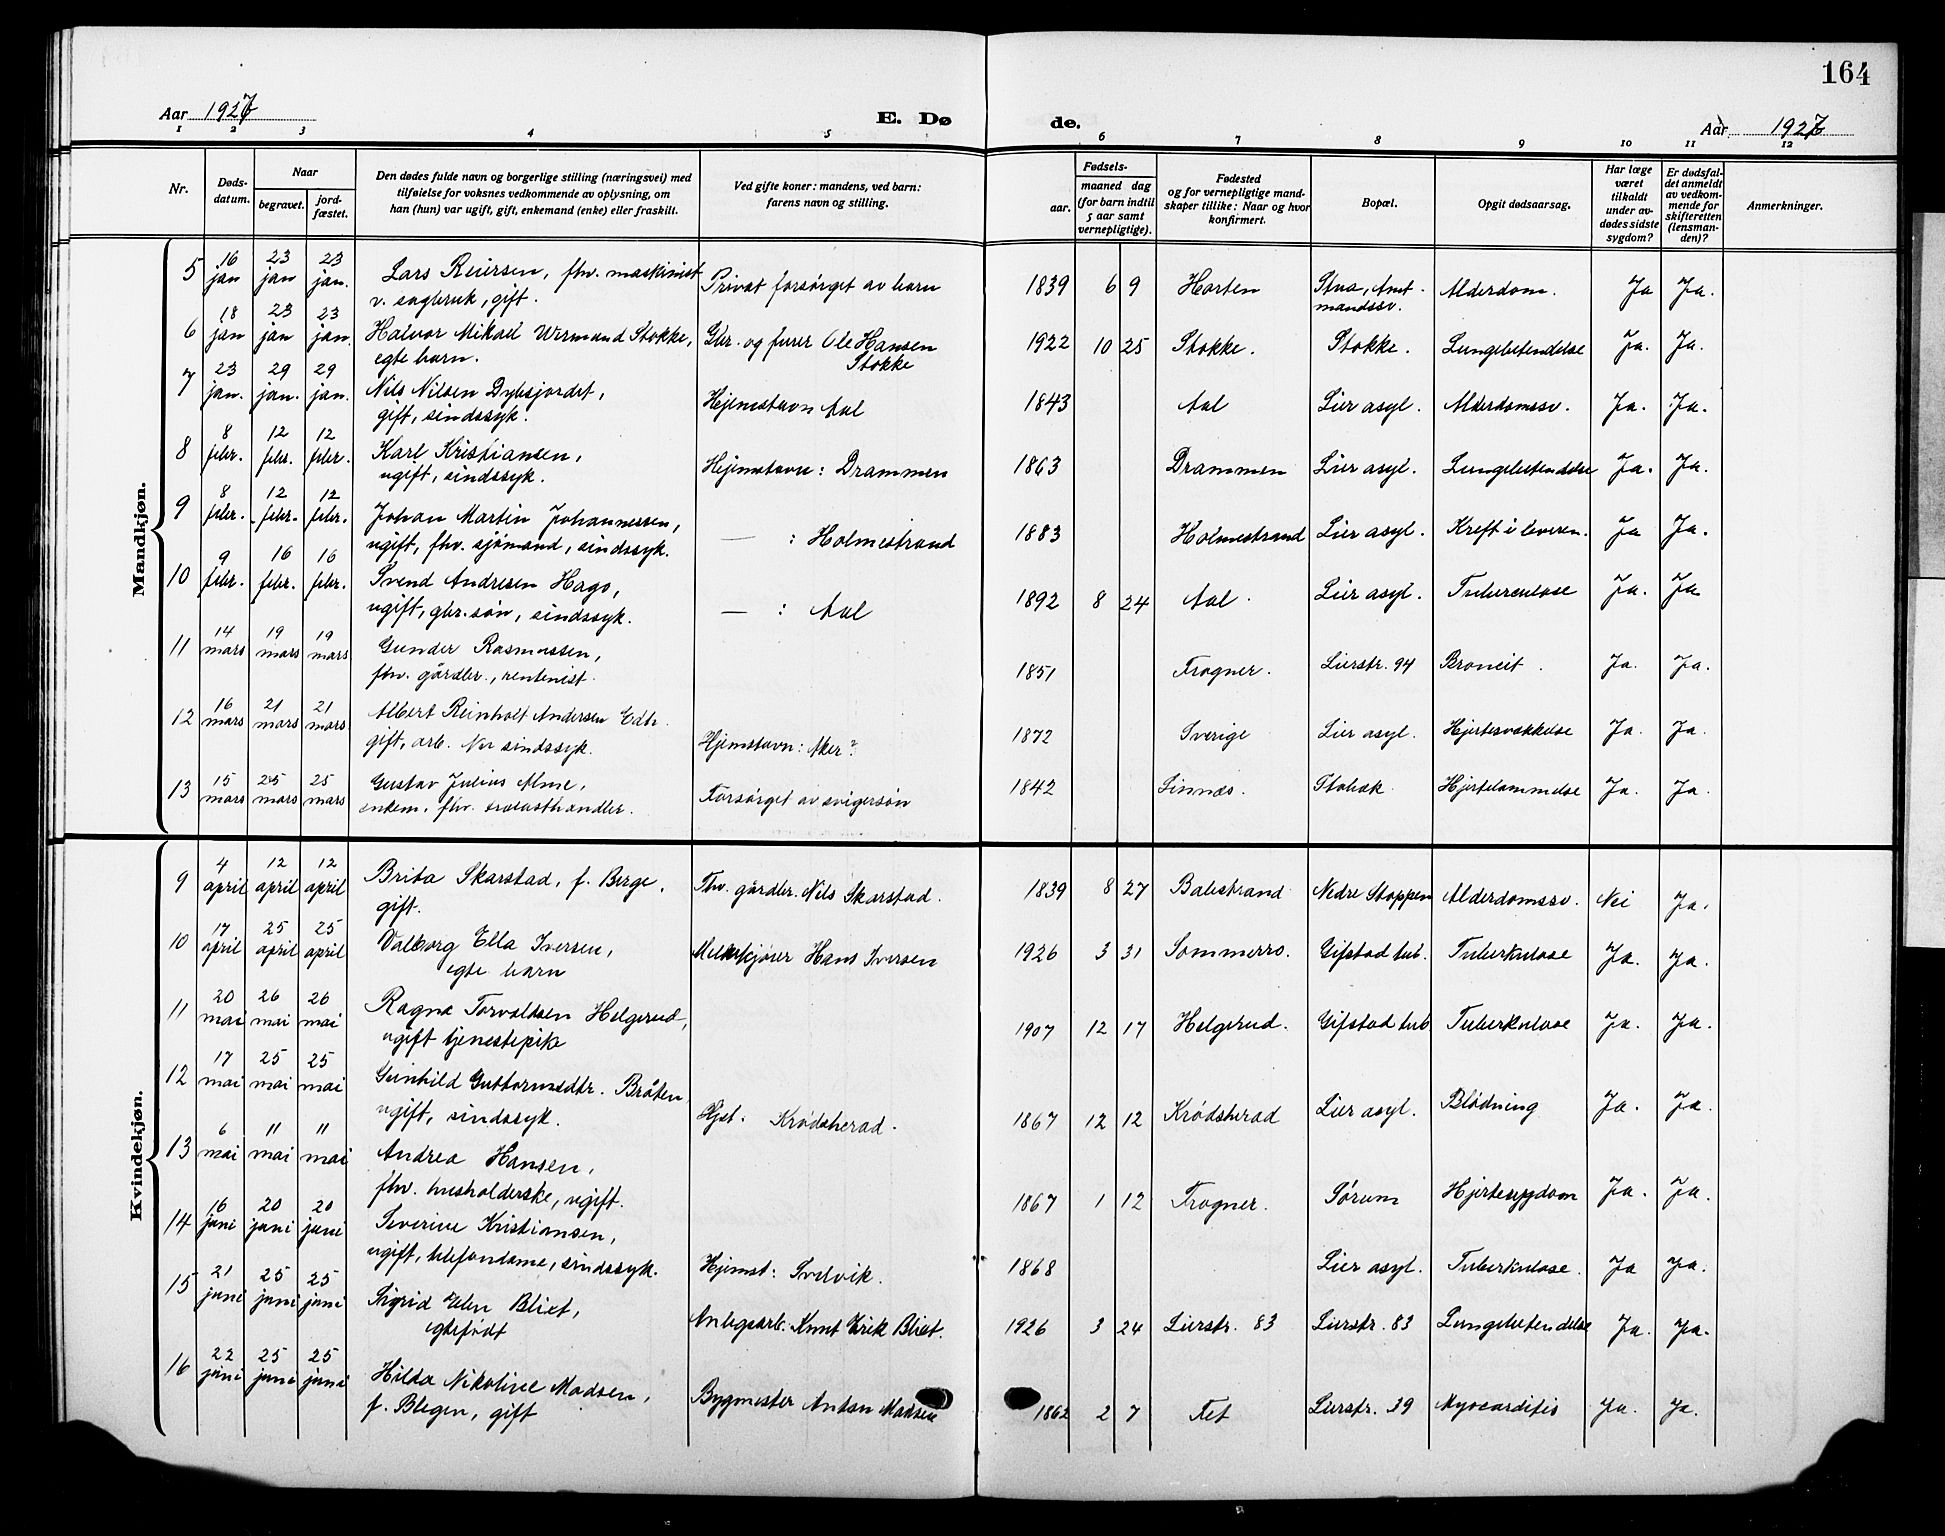 164
Aar 1927 E. Døde. Aar 1927
1 2 3 4 5 6 7 8 9 10 11 12
Nr. Døds-datum. Naar begravet. jord-fæstet. Den dødes fulde navn og borgerlige stilling (næringsvei) med tilføielse for voksnes vedkommende av oplysning, om han (hun) var ugift, gift, enkemand (enke) eller fraskilt. Ved gifte koner: mandens, ved barn: farens navn og stilling. Fødsels- aar. maaned dag (for barn indtil 5 aar samt vernepligtige). Fødested og for vernepligtige mandskaper tillike: Naar og hvor konfirmert. Bopæl. Opgit dødsaarsag. Har læge været tilkaldt under avdødes sidste sygdom? Er dødsfaldet anmeldt av vedkommende for skifteretten (lensmanden)? Anmerkninger.
Mandkjøn.
5 16 jan 23 jan 23 jan. Lars Reiersen, fhv. maskinist v. sagbruk, gift. Privat forsørget av barn 1839 6 9 Horten Stua, Amtmandssv. Alderdom. Ja Ja.
6 18 jan 23 jan 23 jan. Halvor Mikael Wermund Stokke, egte barn. Gbr. og furer Ole Hansen Stokke 1922 10 25 Stokke. Stokke. Lungebetendelse Ja. Ja.
7 23 jan. 29 jan. 29 jan. Nils Nilsen Dybsjordet, gift, sindssyk. Hjemstavn Aal 1843 Aal Lier asyl. Alderdomssv. Ja. Ja.
8 8 febr. 12 febr. 12 febr. Karl Kristiansen, ugift, sindssyk. Hjemstavn: Drammen 1863 Drammen Lier asyl. Lungebetendelse Ja. Ja.
9 8 febr. 12 febr. 12 febr. Johan Martin Johannessen, ugift, fhv. sjømand, sindssyk. — : Holmestrand 1883 Holmestrand Lier asyl. Kreft i leveren. Ja Ja.
10 9 febr. 16 febr. 16 febr. Svend Andresen Hago, ugift, gbr. søn, sindssyk. — : Aal 1892 8 24 Aal. Lier asyl. Tuberculose Ja. Ja
11 14 mars 19 mars 19 mars Gunder Rasmussen, fhv. gårdbr., rentenist. 1851 Frogner. Lierstr. 94 Broncit. Ja. Ja.
12 16 mars 21 mars 21 mars Albert Reinholt Andersen Edh. gift, arb. Nu sindssyk. Hjemstavn: Aker? 1872 Sverige Lier asyl. Hjertesvekkelse Ja. Ja.
13 15 mars 25 mars 25 mars Gustav Julius Alme, enkem. fhv. trelasthandler. Forsørget av svigersøn 1842 Linnes. Stabæk. Hjertelammelse Ja. Ja.
Kvindekjøn.
9 4 april 12 april 12 april Brita Skarstad, f. Berge, gift. Fhv. gårdbr. Nils Skarstad. 1839 8 27 Balestrand Nedre Stoppen Alderdomssv. Nei Ja.
10 17 april 25 april 25 april Valborg Ella Iversen, egte barn Melkekjører Hans Iversen 1926 3 31 Sommerro. Gifstad tub. Tuberkulose Ja. Ja.
11 20 mai 26 mai 26 mai Ragna Torvaldsen Helgerud, ugift tjenestepike 1907 12 17 Helgerud. Gifstad tub Tuberkulose Ja. Ja.
12 17 mai 25 mai 25 mai Gunhild Guttormsdtr. Bråten, ugift, sindssyk. Hjst. Krødsherad. 1867 12 12 Krødsherad Lier asyl. Blødning Ja. Ja.
13 6 mai 11 mai 11 mai Andrea Hansen, fhv. husholderske, ugift. 1867 1 12 Frogner. Sørum Hjertesygdom Ja. Ja.
14 16 juni 20 juni 20 juni Severine Kristiansen, ugift, telefondame, sindssyk. Hjemst: Svelvik. 1868 Lier asyl. Tuberkulose. Ja Ja.
15 21 juni 25 juni 25 juni Sigrid Elen Bliet, egtefødt Anlegsarb. Knut Erik Bliet. 1926 3 24 Lierstr. 83 Lierstr. 83 Lungebetendelse Ja. Ja.
16 22 juni 25 juni 25 juni Hilda Nikoline Madsen, f. Blegen, gift Bygmester Anton Madsen 1862 2 7 Fet Lierstr. 39 Myocarditis Ja. Ja.